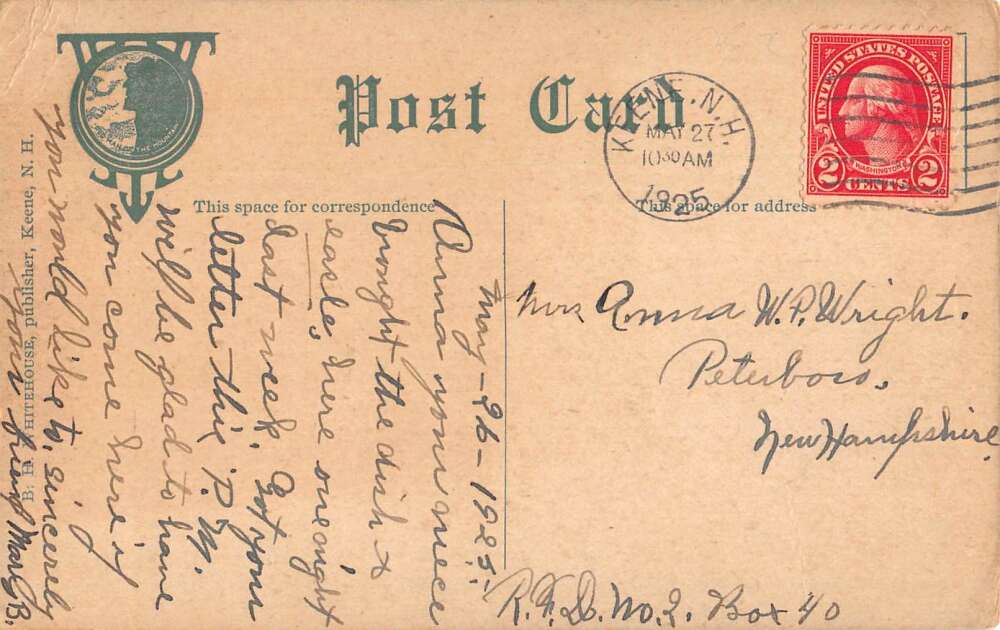 OLD MAN OF THE MOUNTAIN
Post Card
KEENE. N. H.
MAY 27
10 30 AM
1925
UNITED STATES POSTAGE
WASHINGTON
2 CENTS 2
This space for correspondence
This space for address
B. H. WHITEHOUSE, publisher, Keene, N. H.
May - 26 - 1925.
Anna your niece
brought the dish &
easle, here one night
last week. Got your
letter this P. M.
will be glad to have
you come here if
you would like to, sincerely
your friend B.
Mrs Anna W. P. Wright.
Peterboro.
New Hampshire
R. F. D. No. 2. Box 40